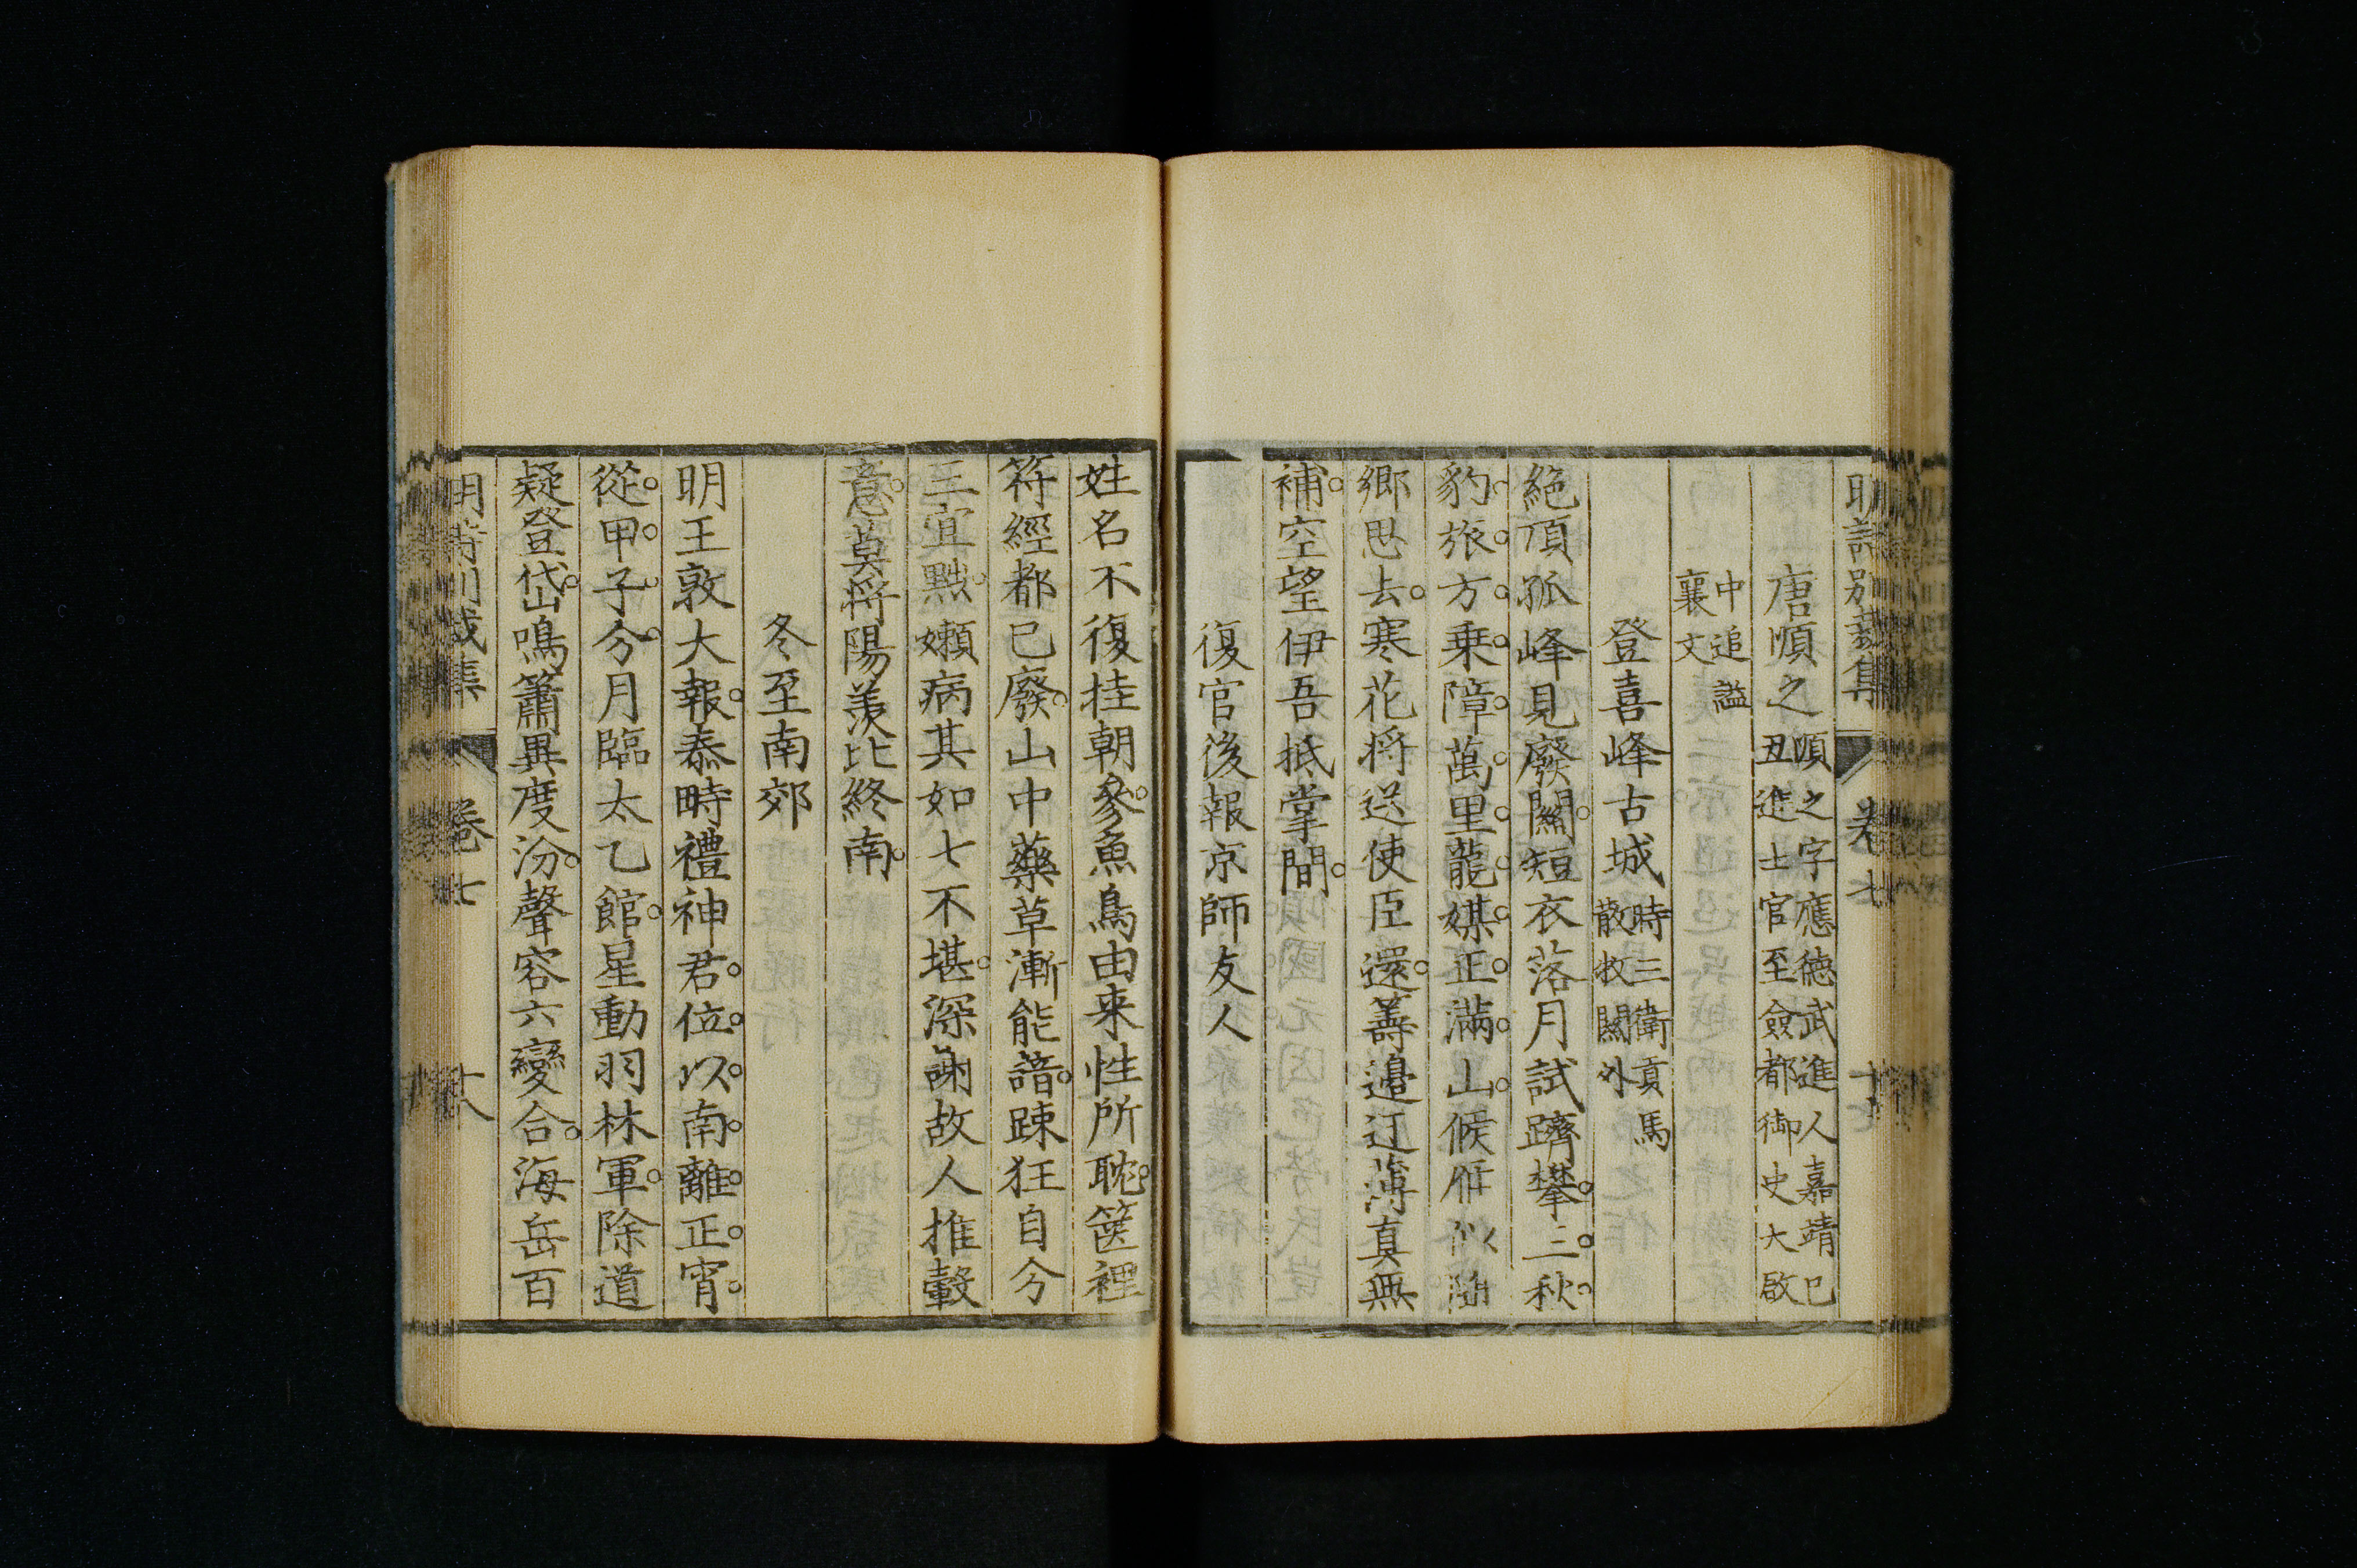 明詩別裁集 卷七 十七
唐順之 順之字應德武進人嘉靖己丑進士官至僉都御史大啟
中追謚襄文
登喜峰古城 時三衛貢馬散牧關外
絶頂孤峰見廢關。短衣落月試躋攀。三秋。
豹。旅。方。乗。障。萬。里。龍。媒。正。滿。山。候雁似隨
鄉思去。寒花將送使臣還。籌邊迂薄真無
補。空望伊吾抵掌間。
復官後報京師友人
姓名不復挂朝參。魚鳥由來性所耽。篋裡
符經都已廢。山中藥草漸能諳。踈狂自分
三宜黜。嬾病其如七不堪。深謝故人推轂
意。莫將陽羨比終南。
冬至南郊
明王敦大報。泰畤禮神君。位。以。南。離。正。宵。
從。甲。子。分。月臨太乙館。星動羽林軍。除道
疑登岱。鳴簫異度汾。聲容六變合。海岳百
明詩別裁集 卷七 十八